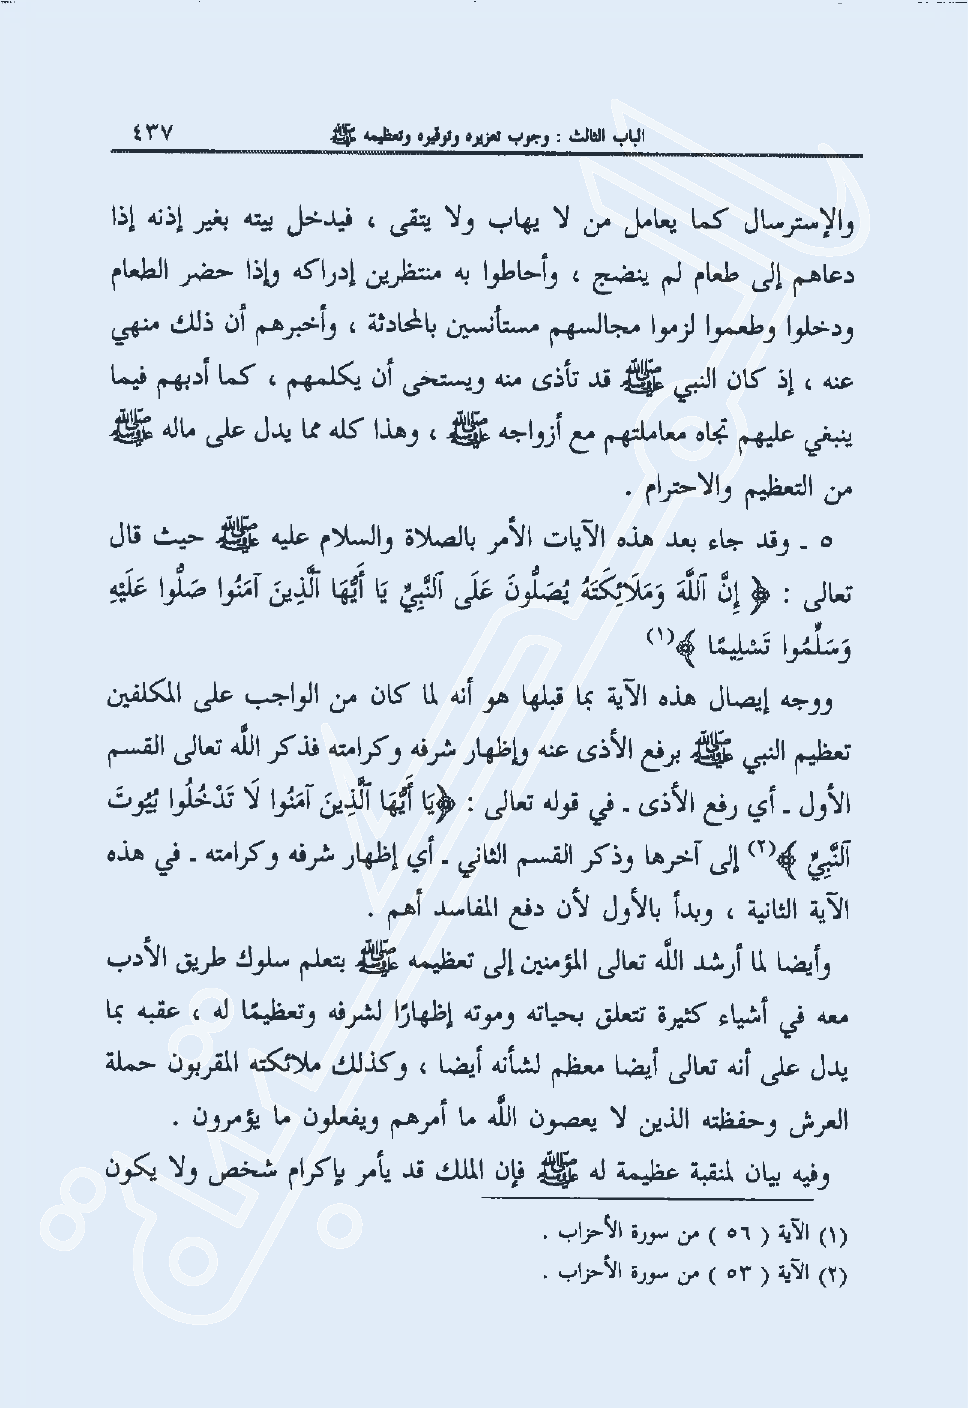 الباب الثالث : وجوب تعزيره وتوقيره وتعظيمه ﷺ ٤٣٧
والإسترسال كما يعامل من لا يهاب ولا يتقى ، فيدخل بيته بغير إذنه إذا
دعاهم إلى طعام لم ينضج ، وأحاطوا به منتظرين إدراكه وإذا حضر الطعام
ودخلوا وطعموا لزموا مجالسهم مستأنسين بالمحادثة ، وأخبرهم أن ذلك منهي
عنه ، إذ كان النبي ﷺ قد تأذى منه ويستحى أن يكلمهم ، كما أدبهم فيما
ينبغي عليهم تجاه معاملتهم مع أزواجه ﷺ ، وهذا كله مما يدل على ماله ﷺ
من التعظيم والاحترام .
٥ ـ وقد جاء بعد هذه الآيات الأمر بالصلاة والسلام عليه ﷺ حيث قال
تعالى : ﴿ إِنَّ ٱللَّهَ وَمَلَائِكَتَهُ يُصَلُّونَ عَلَى ٱلنَّبِيِّ يَا أَيُّهَا ٱلَّذِينَ آمَنُوا صَلُّوا عَلَيْهِ
وَسَلِّمُوا تَسْلِيمًا ﴾(١)
ووجه إيصال هذه الآية بما قبلها هو أنه لما كان من الواجب على المكلفين
تعظيم النبي ﷺ برفع الأذى عنه وإظهار شرفه وكرامته فذكر اللَّه تعالى القسم
الأول ـ أي رفع الأذى ـ في قوله تعالى : ﴿يَا أَيُّهَا ٱلَّذِينَ آمَنُوا لَا تَدْخُلُوا بُيُوتَ
ٱلنَّبِيِّ ﴾(٢) إلى آخرها وذكر القسم الثاني ـ أي إظهار شرفه وكرامته ـ في هذه
الآية الثانية ، وبدأ بالأول لأن دفع المفاسد أهم .
وأيضا لما أرشد اللَّه تعالى المؤمنين إلى تعظيمه ﷺ بتعلم سلوك طريق الأدب
معه في أشياء كثيرة تتعلق بحياته وموته إظهارًا لشرفه وتعظيمًا له ، عقبه بما
يدل على أنه تعالى أيضا معظم لشأنه أيضا ، وكذلك ملائكته المقربون حملة
العرش وحفظته الذين لا يعصون اللَّه ما أمرهم ويفعلون ما يؤمرون .
وفيه بيان لمنقبة عظيمة له ﷺ فإن الملك قد يأمر بإكرام شخص ولا يكون
(١) الآية ( ٥٦ ) من سورة الأحزاب .
(٢) الآية ( ٥٣ ) من سورة الأحزاب .